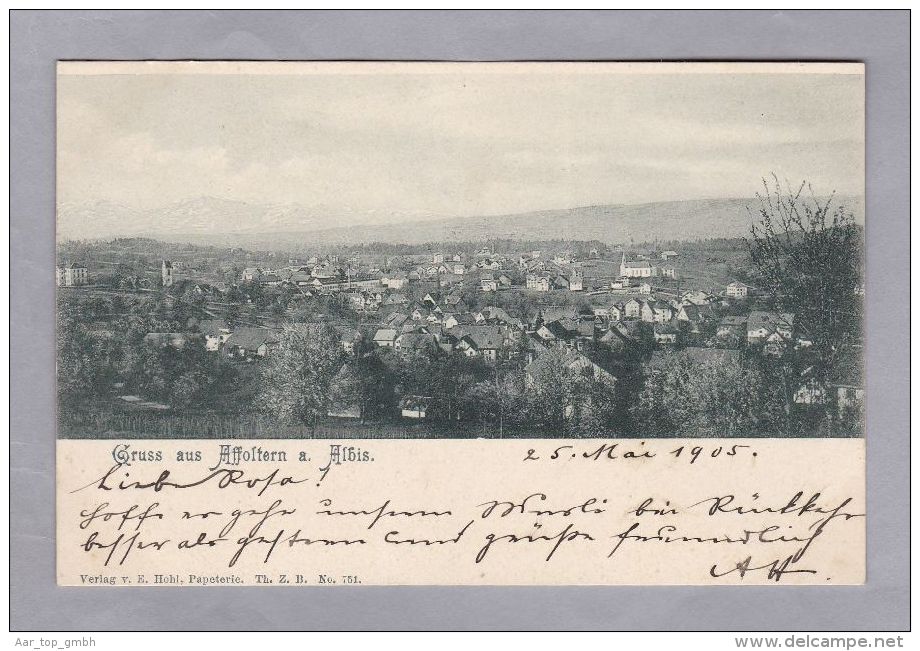 Gruss aus Affoltern a. Albis.
25. Mai 1905.
Liebe Rosa!
Hoffe es gehe unserm bei Rückkehr
besser als gestern und grüße freundlich
AH
Verlag v. E. Hohl, Papeterie. Th. Z. B. No. 751.
Aar_top_gmbh
www.delcampe.net